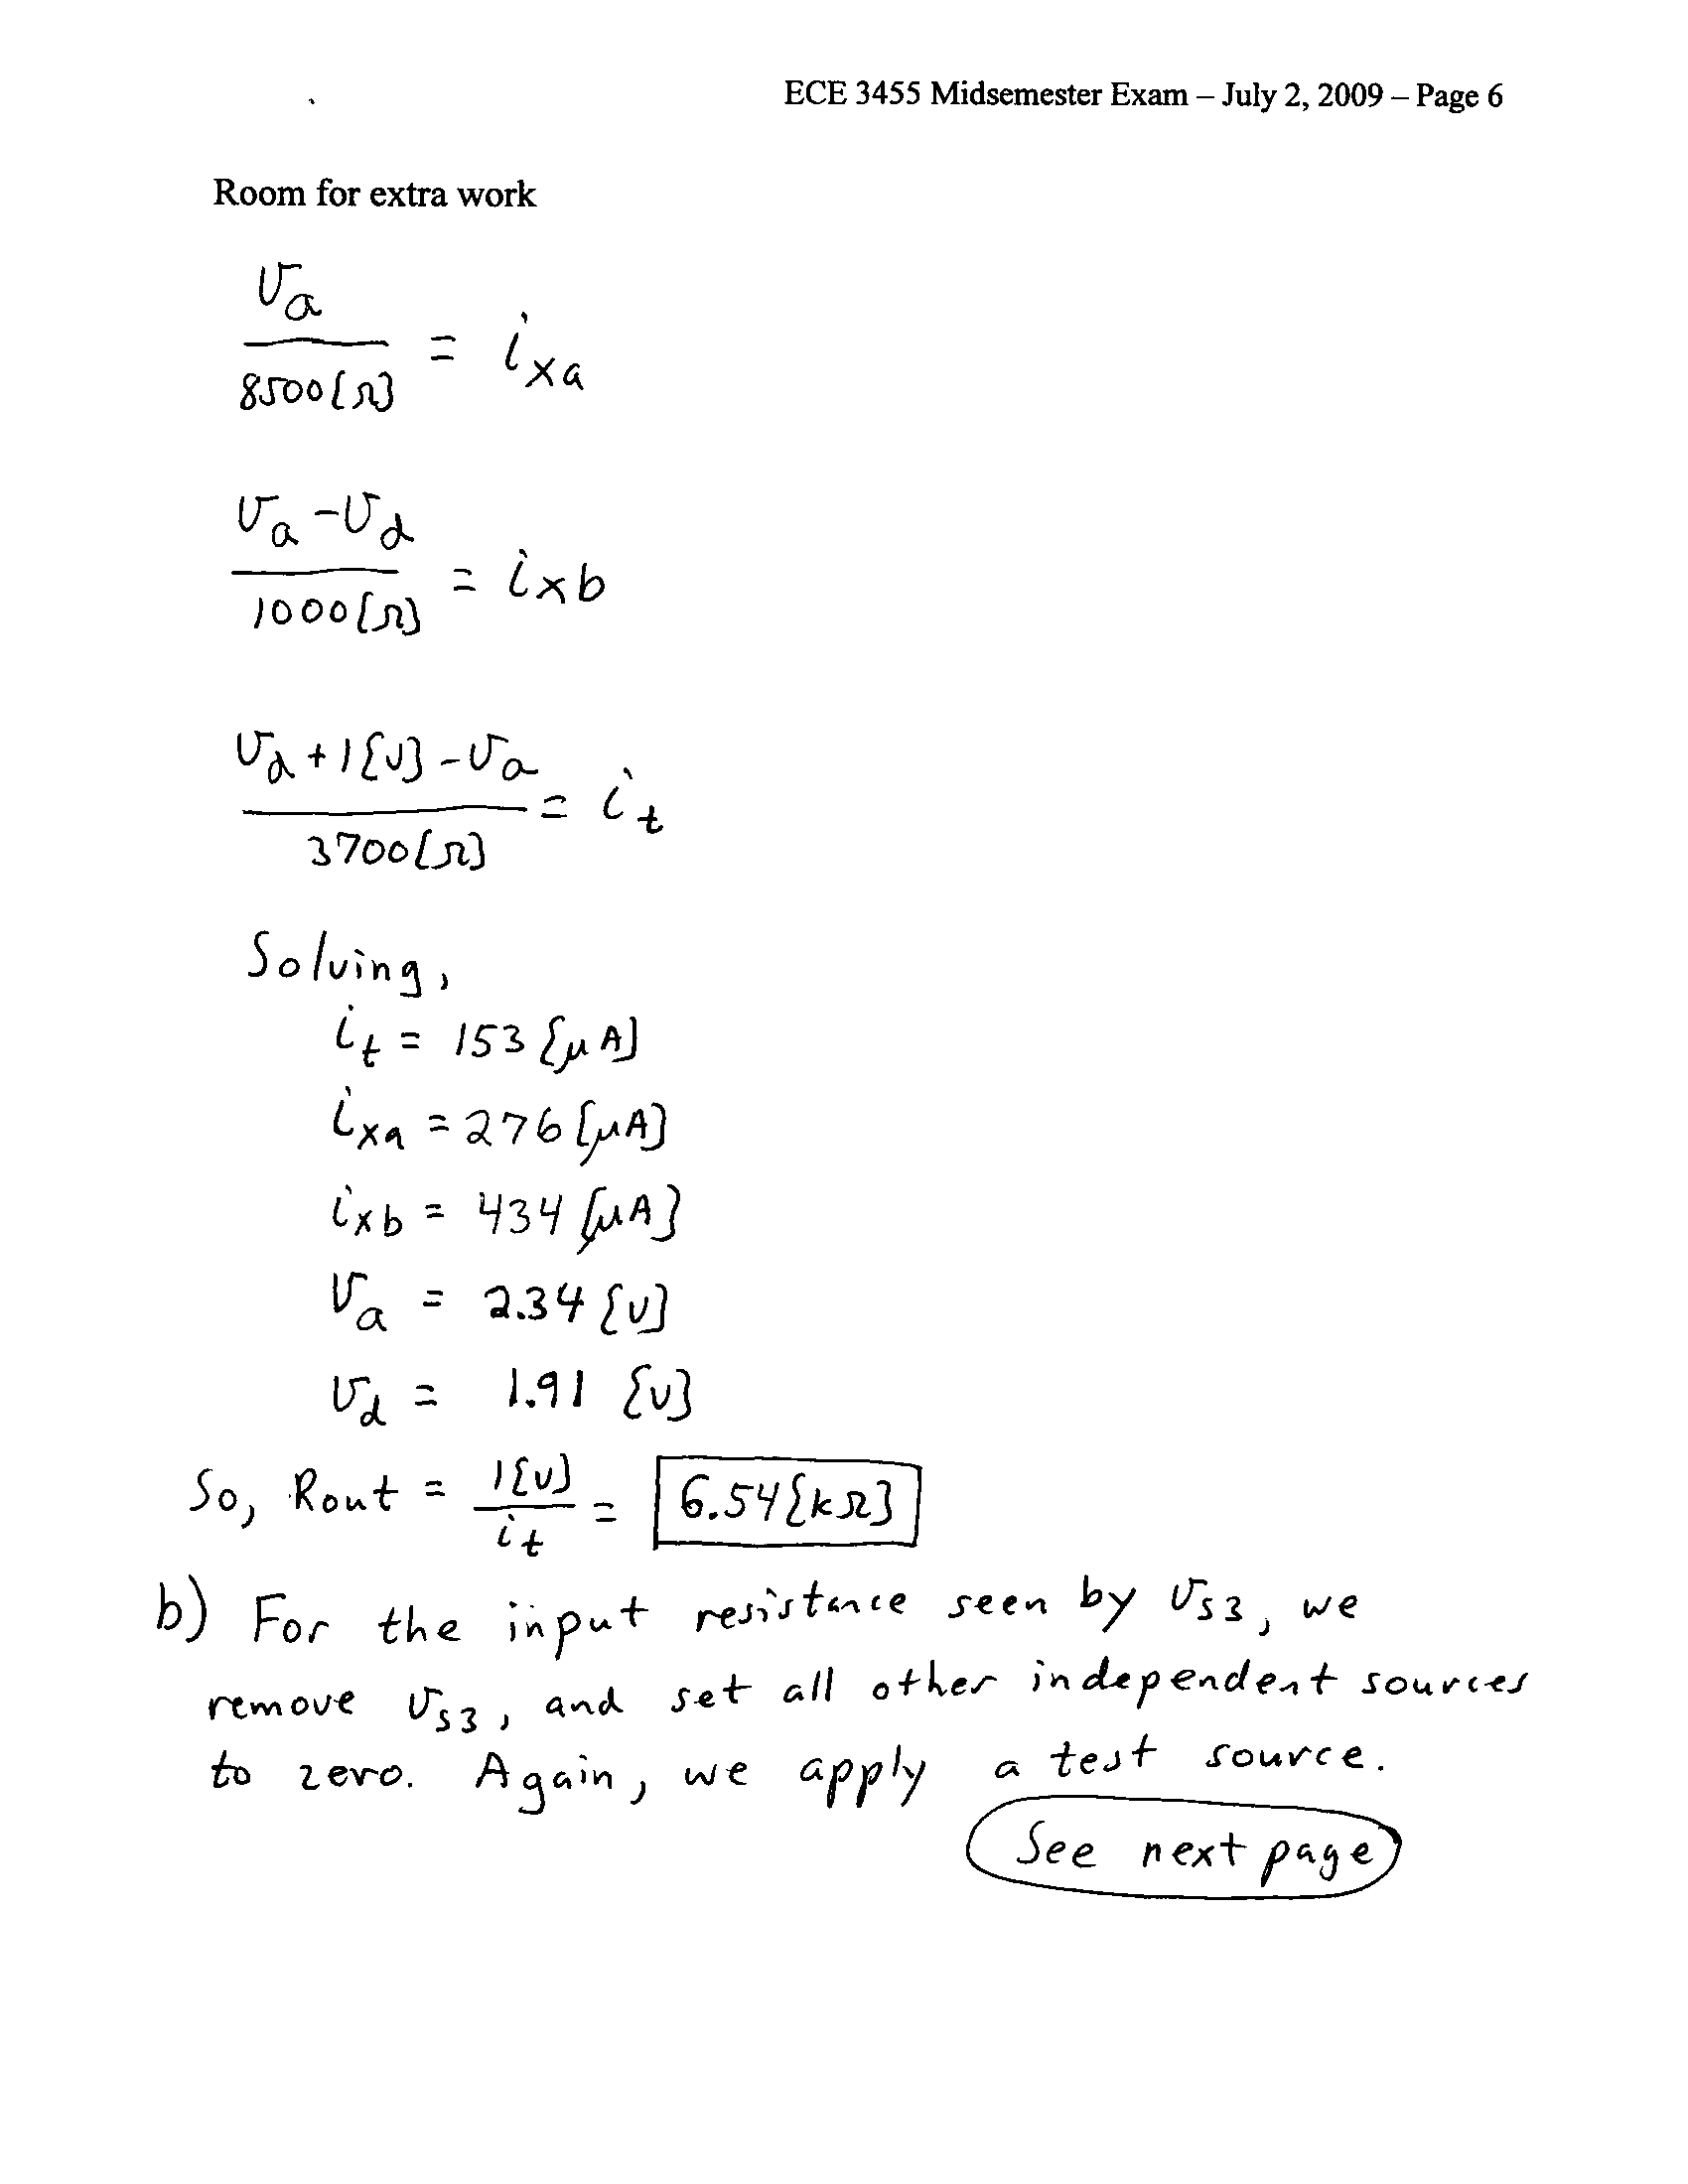 ECE 3455 Midsemester Exam – July 2, 2009 – Page 6
Room for extra work
va / 8500[Ω] = ixa
va - vd / 1000[Ω] = ixb
vd + 1[V] - va / 3700[Ω] = it
Solving,
it = 153 [μA]
ixa = 276 [μA]
ixb = 434 [μA]
va = 2.34 [V]
vd = 1.91 [V]
So, Rout = 1[V] / it = 6.54[kΩ]
b) For the input resistance seen by vs3, we
remove vs3, and set all other independent sources
to zero. Again, we apply a test source.
See next page